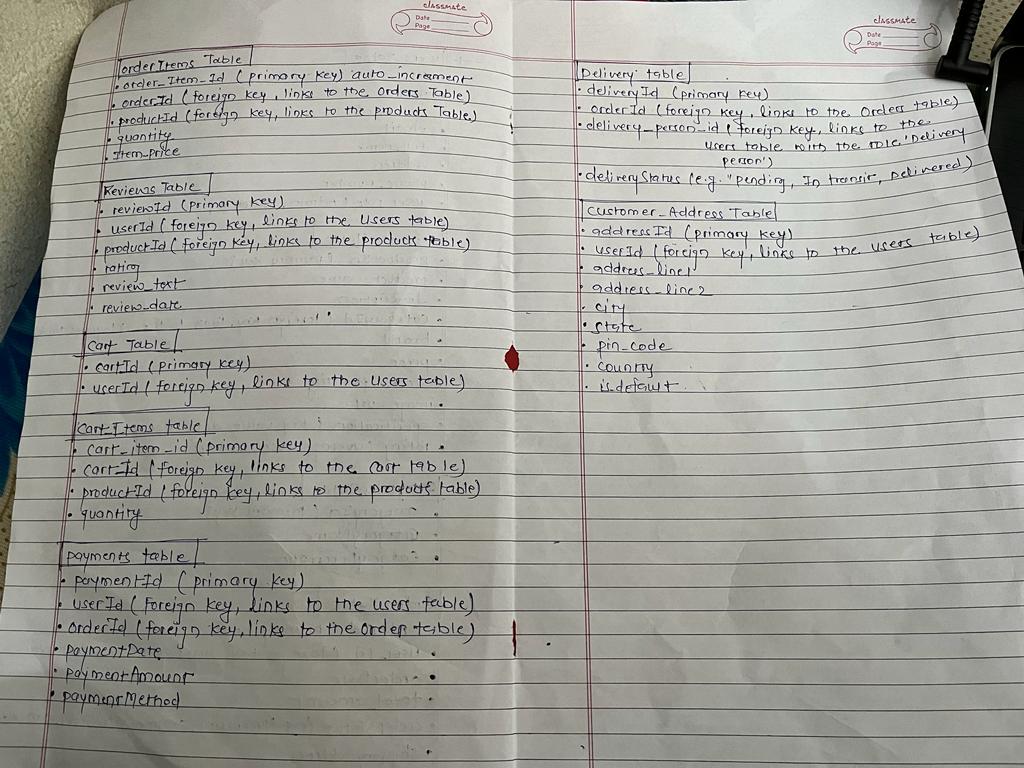 classmate
Date
Page
orderItems Table
• order_Item_Id (primary key) auto_increment
• orderId (foreign key, links to the orders Table)
• productId (foreign key, links to the products Table)
• quantity
• Item_price
Reviews Table
• reviewId (primary key)
• userId (foreign key, links to the Users table)
• productId (foreign key, links to the products table)
• rating
• review_text
• review_date
Cart Table
• cartId (primary key)
• userId (foreign key, links to the Users table)
Cart Items table
• cart_item_id (primary key)
• cart_Id (foreign key, links to the cart table)
• productId (foreign key, links to the products table)
• quantity
payments table
• paymentId (primary key)
• userId (foreign key, links to the users table)
• orderId (foreign key, links to the order table)
• paymentDate
• paymentAmount
• paymentMethod
classmate
Date
Page
Delivery table
• deliveryId (primary key)
• orderId (foreign key, links to the Orders table)
• delivery_person_id (foreign key, links to the
Users table with the role 'Delivery
person')
• deliveryStatus (e.g. "pending, In transit, Delivered)
Customer_Address Table
• addressId (primary key)
• userId (foreign key, links to the users table)
• address_line1
• address_line2
• city
• state
• pin_code
• country
• isdefault